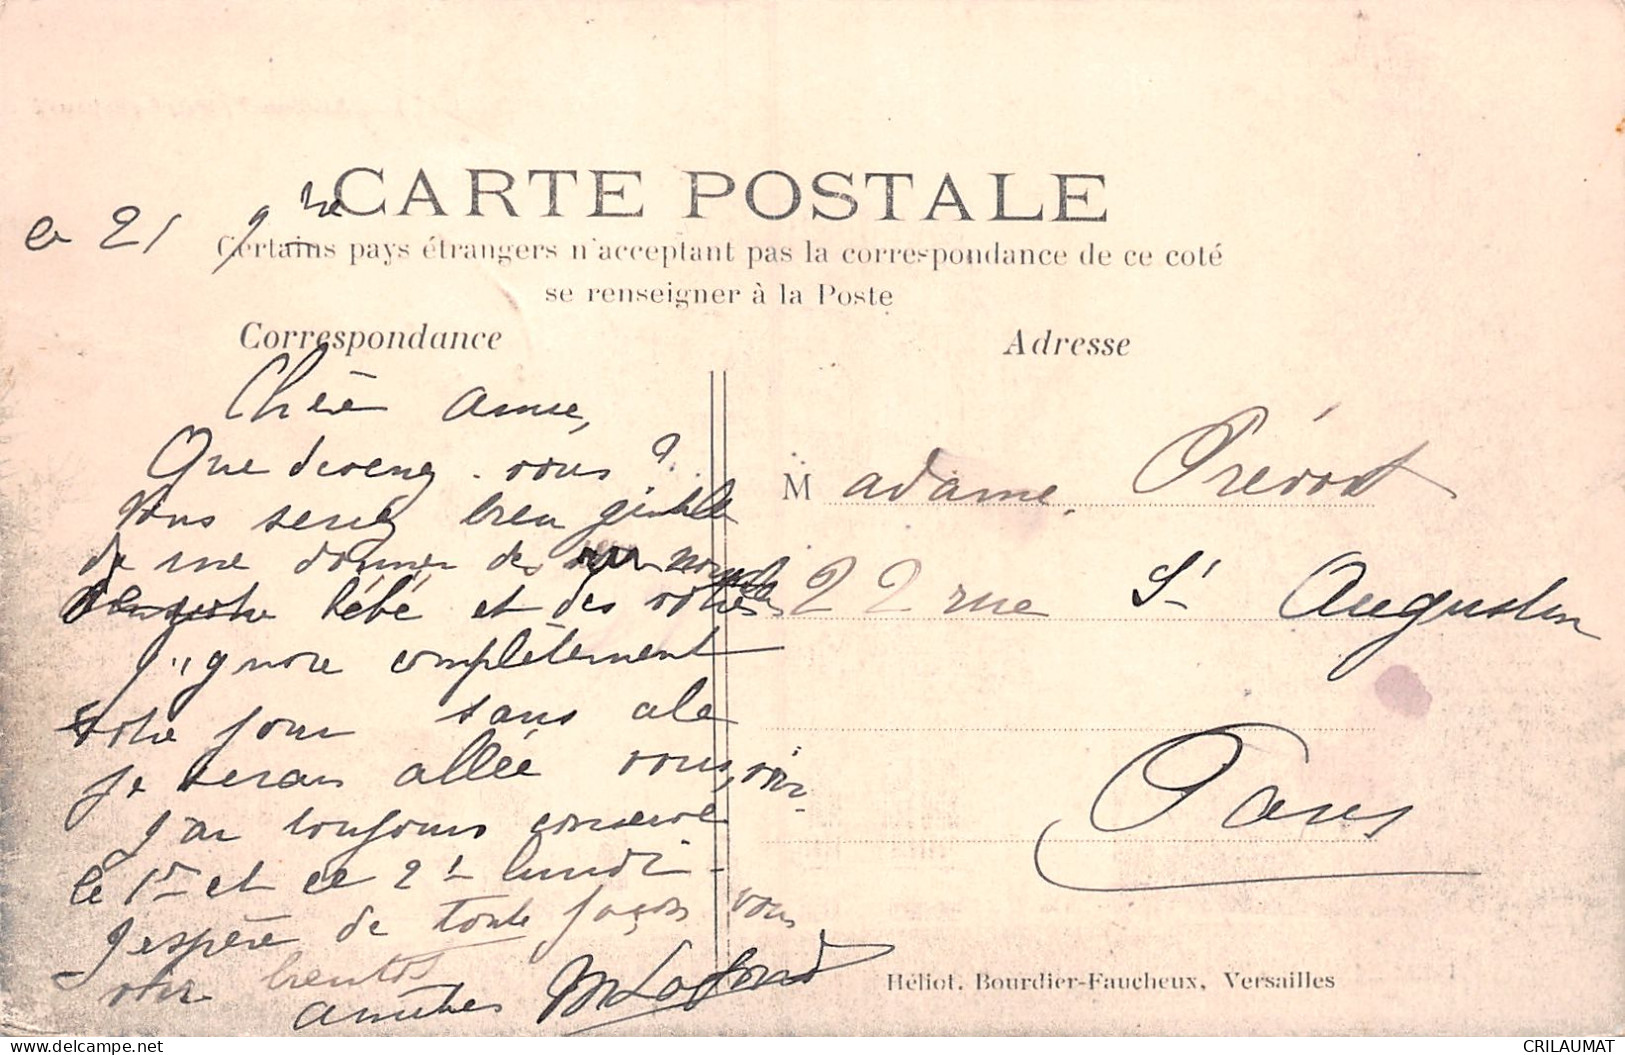 CARTE POSTALE
ce 21 9bre
Certains pays étrangers n'acceptant pas la correspondance de ce coté
se renseigner à la Poste
Correspondance
Adresse
Chère amie,
Que devenez-vous ?
Vous seriez bien gentille
de me donner des nouvelles
de votre bébé et des votres
J'ignore complètement
votre jour sans cela
je serais allée vous voir
J'ai toujours conservé
le 1er et ce 2d lundi -
J'espère de toute façon vous
voir bientôt
amitiés MLafond
Madame Prévost
22 rue St Augustin
Paris
Héliot. Bourdier-Faucheux, Versailles
CRILAUMAT